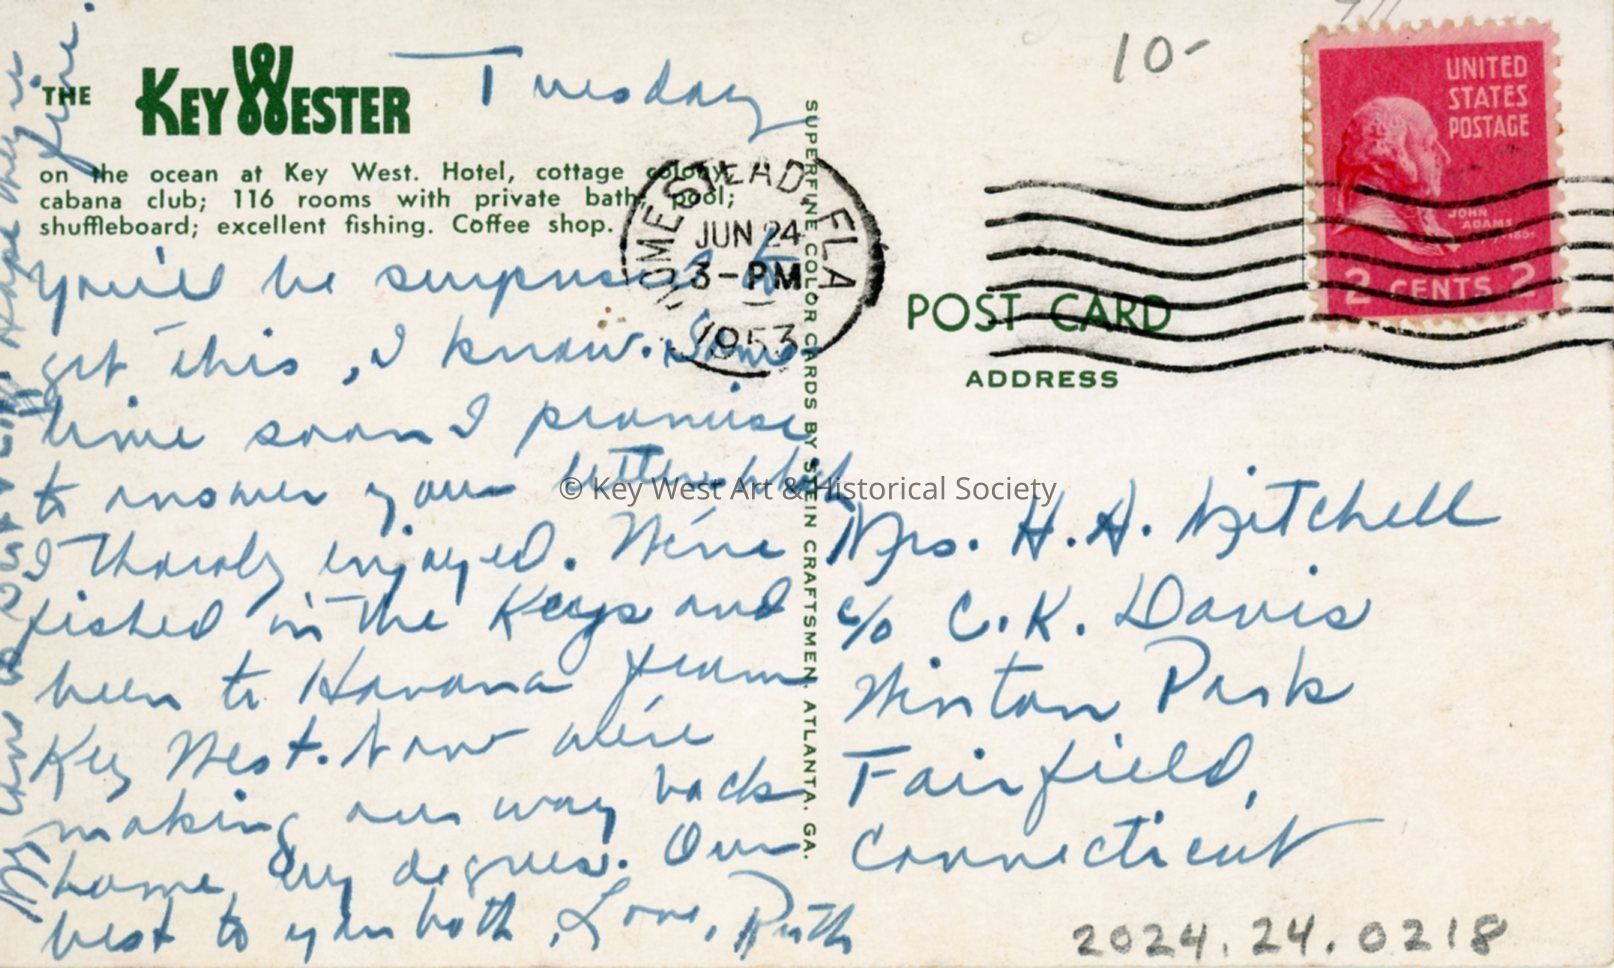 THE KEY WESTER
on the ocean at Key West. Hotel, cottage colony,
cabana club; 116 rooms with private bath; pool;
shuffleboard; excellent fishing. Coffee shop.
Tuesday
You'll be surprised to
get this, I know. Some
time soon I promise
to answer your letter which
I thoroly enjoyed. We've
fished in the Keys and
been to Havana from
Key West. Now we're
making our way back
home, by degrees. Our
best to you both, Love, Ruth
hope they're
fine.
SUPERFINE COLOR CARDS BY STEIN CRAFTSMEN, ATLANTA. GA.
HOMESTEAD, FLA
JUN 24
3-PM
1953
10-
UNITED
STATES
POSTAGE
JOHN
ADAMS
2 CENTS 2
POST CARD
ADDRESS
Mrs. H. A. Mitchell
c/o C. K. Davis
Winton Park
Fairfield,
Connecticut
2024.24.0218
© Key West Art & Historical Society